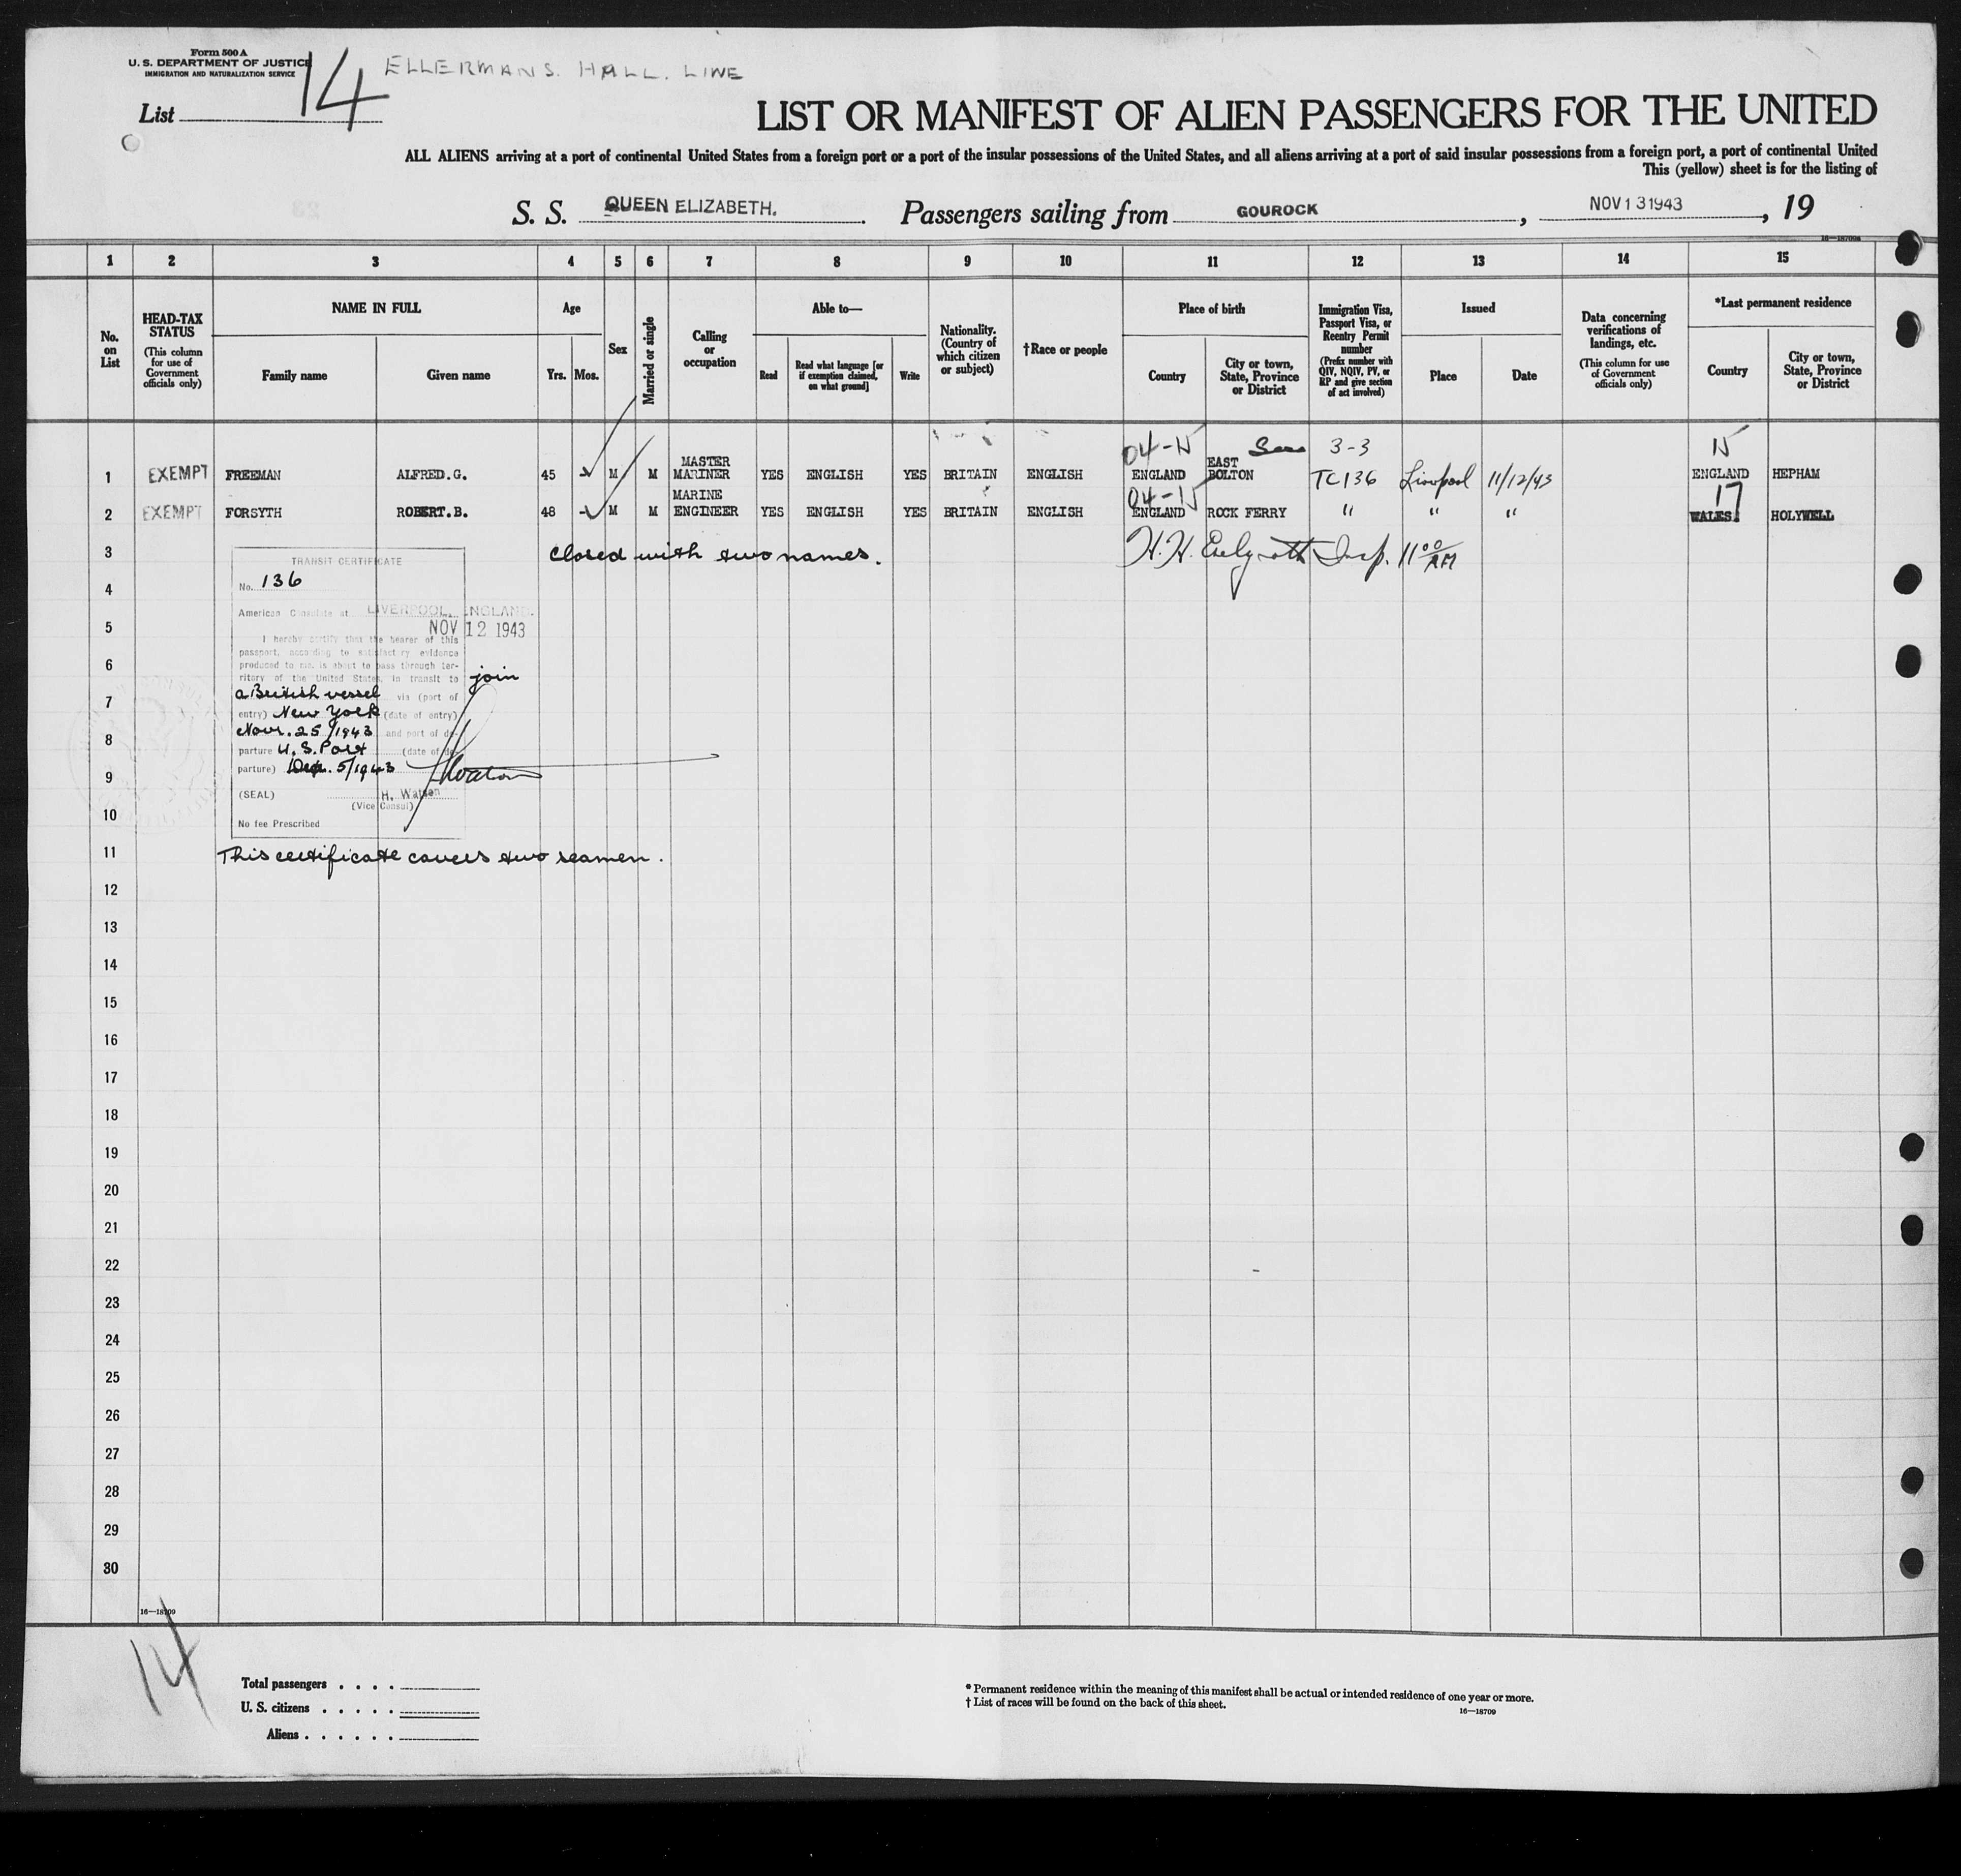 Form 500 A
U. S. DEPARTMENT OF JUSTICE
IMMIGRATION AND NATURALIZATION SERVICE
14
ELLERMANS. HALL. LINE
List
LIST OR MANIFEST OF ALIEN PASSENGERS FOR THE UNITED
ALL ALIENS arriving at a port of continental United States from a foreign port or a port of the insular possessions of the United States, and all aliens arriving at a port of said insular possessions from a foreign port, a port of continental United
This (yellow) sheet is for the listing of
S. S. QUEEN ELIZABETH. Passengers sailing from GOUROCK, NOV 13 1943, 19
1 2 3 4 5 6 7 8 9 10 11 12 13 14 15
No. on List
HEAD-TAX STATUS (This column for use of Government officials only)
NAME IN FULL
Family name
Given name
Age
Yrs. Mos.
Sex
Married or single
Calling or occupation
Able to—
Read
Read what language [or if exemption claimed, on what ground]
Write
Nationality. (Country of which citizen or subject)
†Race or people
Place of birth
Country
City or town, State, Province or District
Immigration Visa, Passport Visa, or Reentry Permit number (Prefix number with QIV, NQIV, PV, or RP and give section of act involved)
Issued
Place
Date
Data concerning verifications of landings, etc. (This column for use of Government officials only)
*Last permanent residence
Country
City or town, State, Province or District
3-3
1 EXEMPT FREEMAN ALFRED.G. 45 M M MASTER MARINER YES ENGLISH YES BRITAIN ENGLISH ENGLAND EAST BOLTON TC136 Liverpool 11/12/43 ENGLAND HEPHAM
17
2 EXEMPT FORSYTH ROBERT.B. 48 M M MARINE ENGINEER YES ENGLISH YES BRITAIN ENGLISH ENGLAND ROCK FERRY " " " WALES. HOLYWELL
3 Closed with two names. H. H. Insp. 11 00 AM
TRANSIT CERTIFICATE
No. 136
4
American Consulate at LIVERPOOL, ENGLAND.
5 NOV 12 1943
I hereby certify that the bearer of this
passport, according to satisfactory evidence
6 produced to me, is about to pass through ter-
ritory of the United States, in transit to join
7 a British vessel via (port of
entry) New York (date of entry)
8 Nov. 25/1943 and port of de-
parture U. S. Port (date of de-
9 parture) Dec. 5/1943 HWatson
(SEAL) H. Watson
10 (Vice Consul)
No fee Prescribed
11 This certificate covers two seamen.
12
13
14
15
16
17
18
19
20
21
22
23
24
25
26
27
28
29
30
16—18709
14
Total passengers . . . .
U. S. citizens . . . . .
Aliens . . . . . .
* Permanent residence within the meaning of this manifest shall be actual or intended residence of one year or more.
† List of races will be found on the back of this sheet.
16—18709